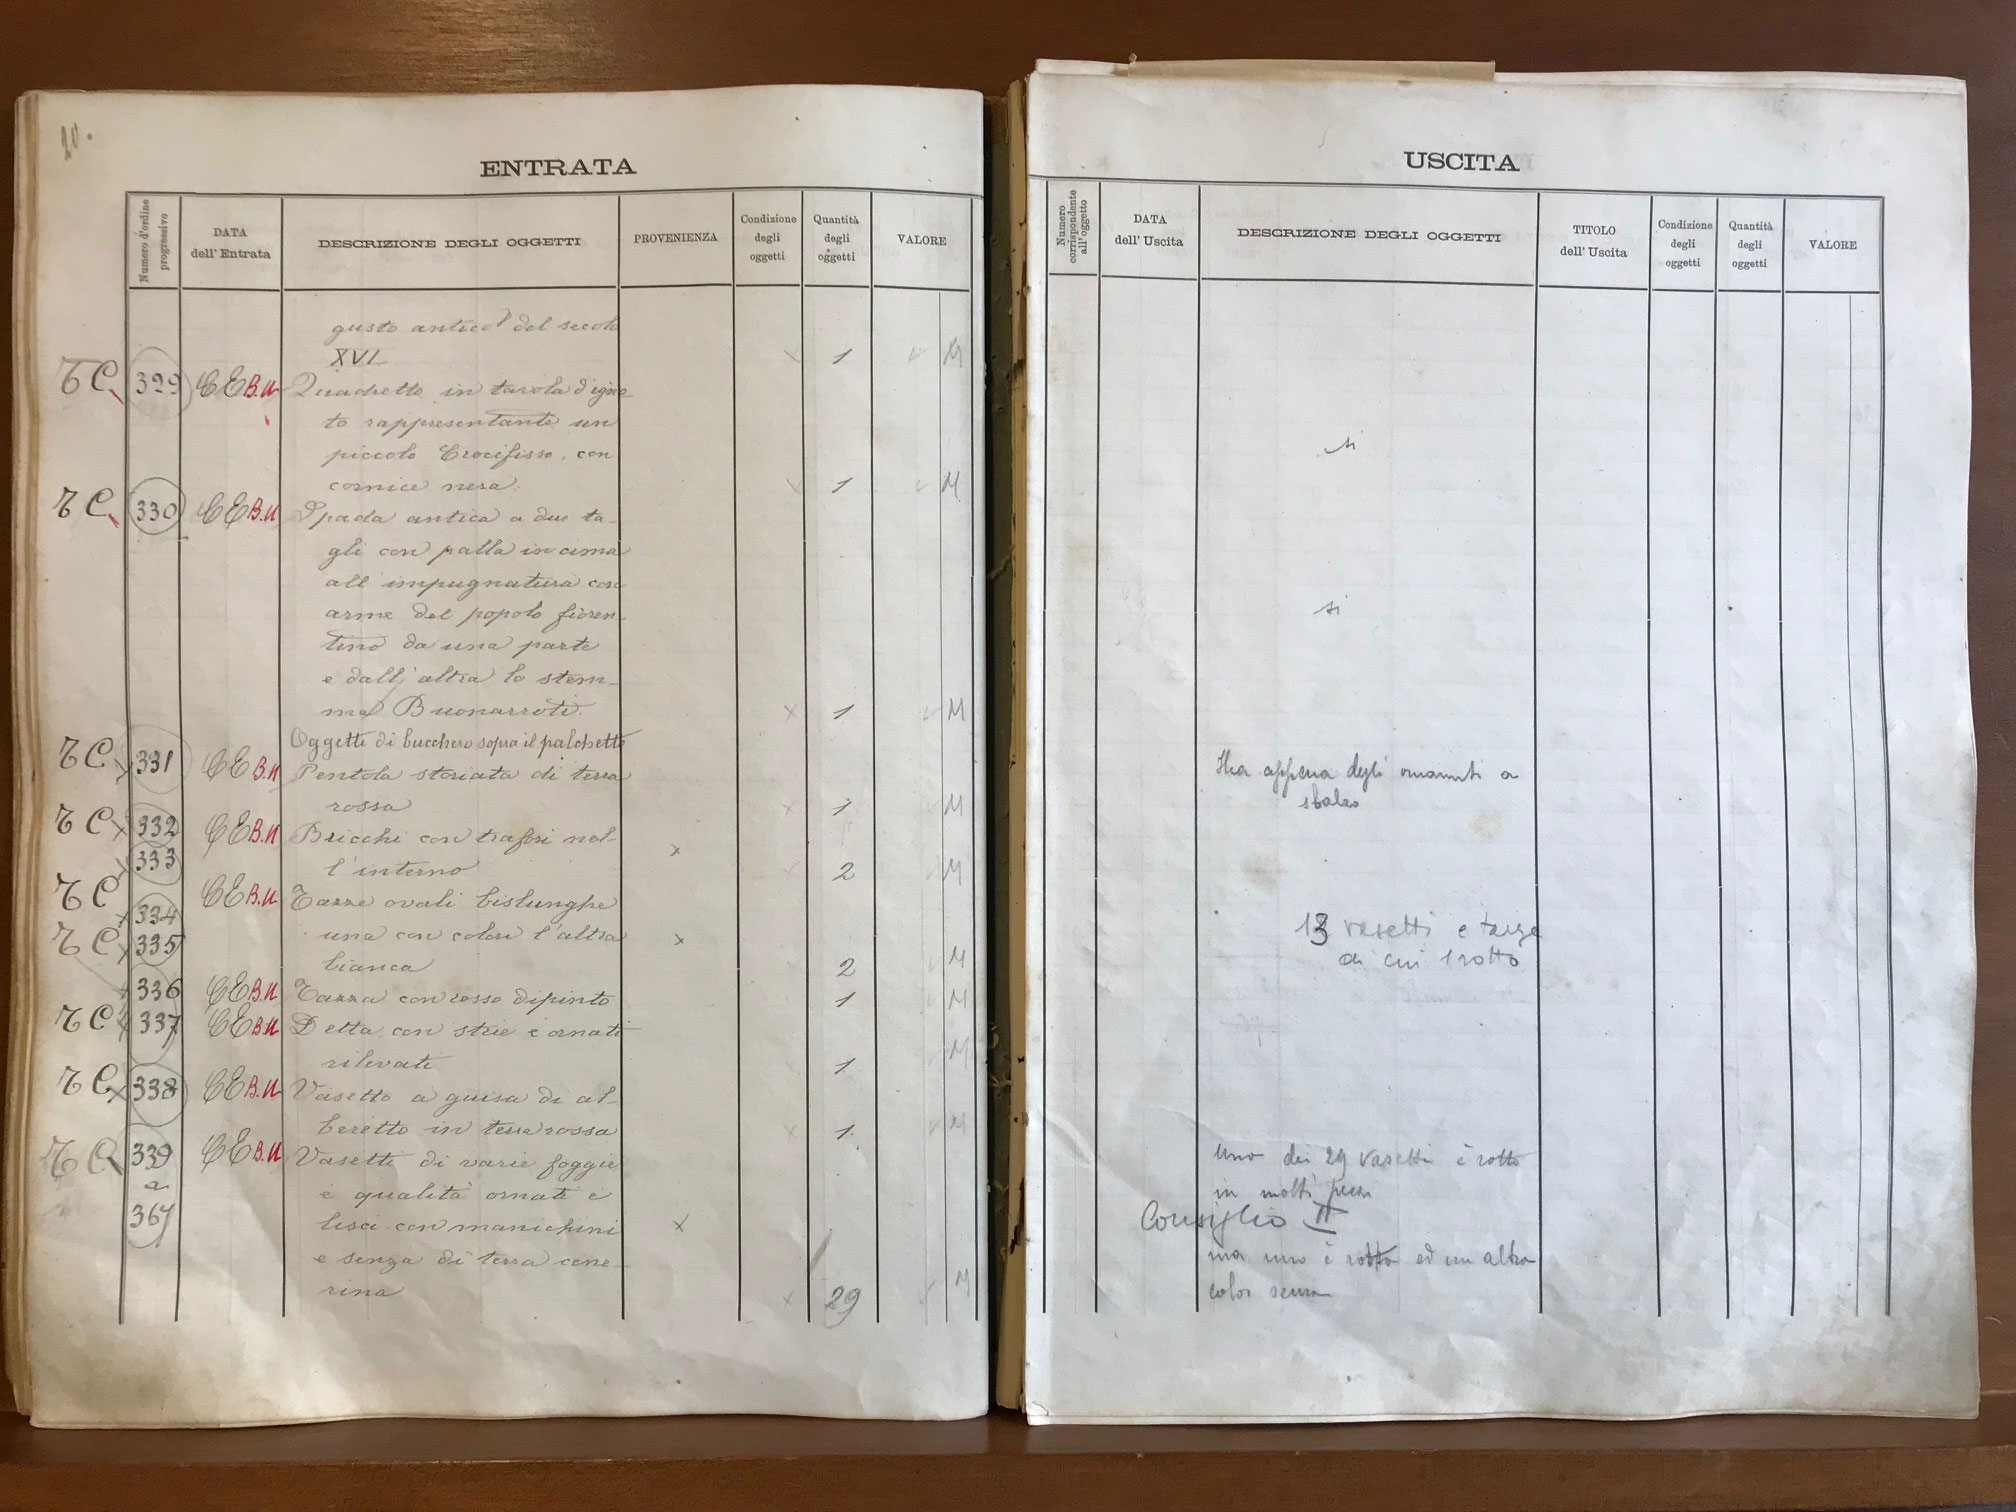 10.
ENTRATA
Numero d'ordine progressivo
DATA dell' Entrata
DESCRIZIONE DEGLI OGGETTI
PROVENIENZA
Condizione degli oggetti
Quantità degli oggetti
VALORE
gusto antico del secolo
XVI 1 M
TC 329 CE B.U Quadretto in tavola d'igno
to rappresentante un
piccolo Crocifisso, con
cornice nera. 1 M
TC 330 CE B.U Spada antica a due ta-
gli con palla in cima
all'impugnatura con
arme del popolo fioren-
tino da una parte
e dall'altra lo stem-
ma Buonarroti. x 1 M
Oggetti di bucchero sopra il palchetto
TC x 331 CE B.U Pentola storiata di terra
rossa x 1 M
TC x 332 CE B.U Bricchi con trafori nel-
x 333 l'interno x 2 M
TC x 334 CE B.U Tazze ovali bislunghe
TC x 335 una con colori l'altra x
bianca 2 M
x 336 CE B.U Tazza con rosso dipinto 1 M
TC x 337 CE B.U Detta con strie e ornati
rilevati 1 M
TC x 338 CE B.U Vasetto a guisa di al-
beretto in terra rossa 1 M
TC 339 CE B.U Vasetti di varie foggie
a e qualità ornati e
367 lisci con manichini x
e senza di terra cene-
rina x 29 M
USCITA
Numero corrispondente all'oggetto
DATA dell' Uscita
DESCRIZIONE DEGLI OGGETTI
TITOLO dell' Uscita
Condizione degli oggetti
Quantità degli oggetti
VALORE
si
si
Ha appena degli ornamenti a
sbalzo
13 vasetti e tazze
di cui 1 rotto
Uno dei 29 vasetti è rotto
in molti pezzi
Consiglio II
ma uno è rotto ed un altro
color